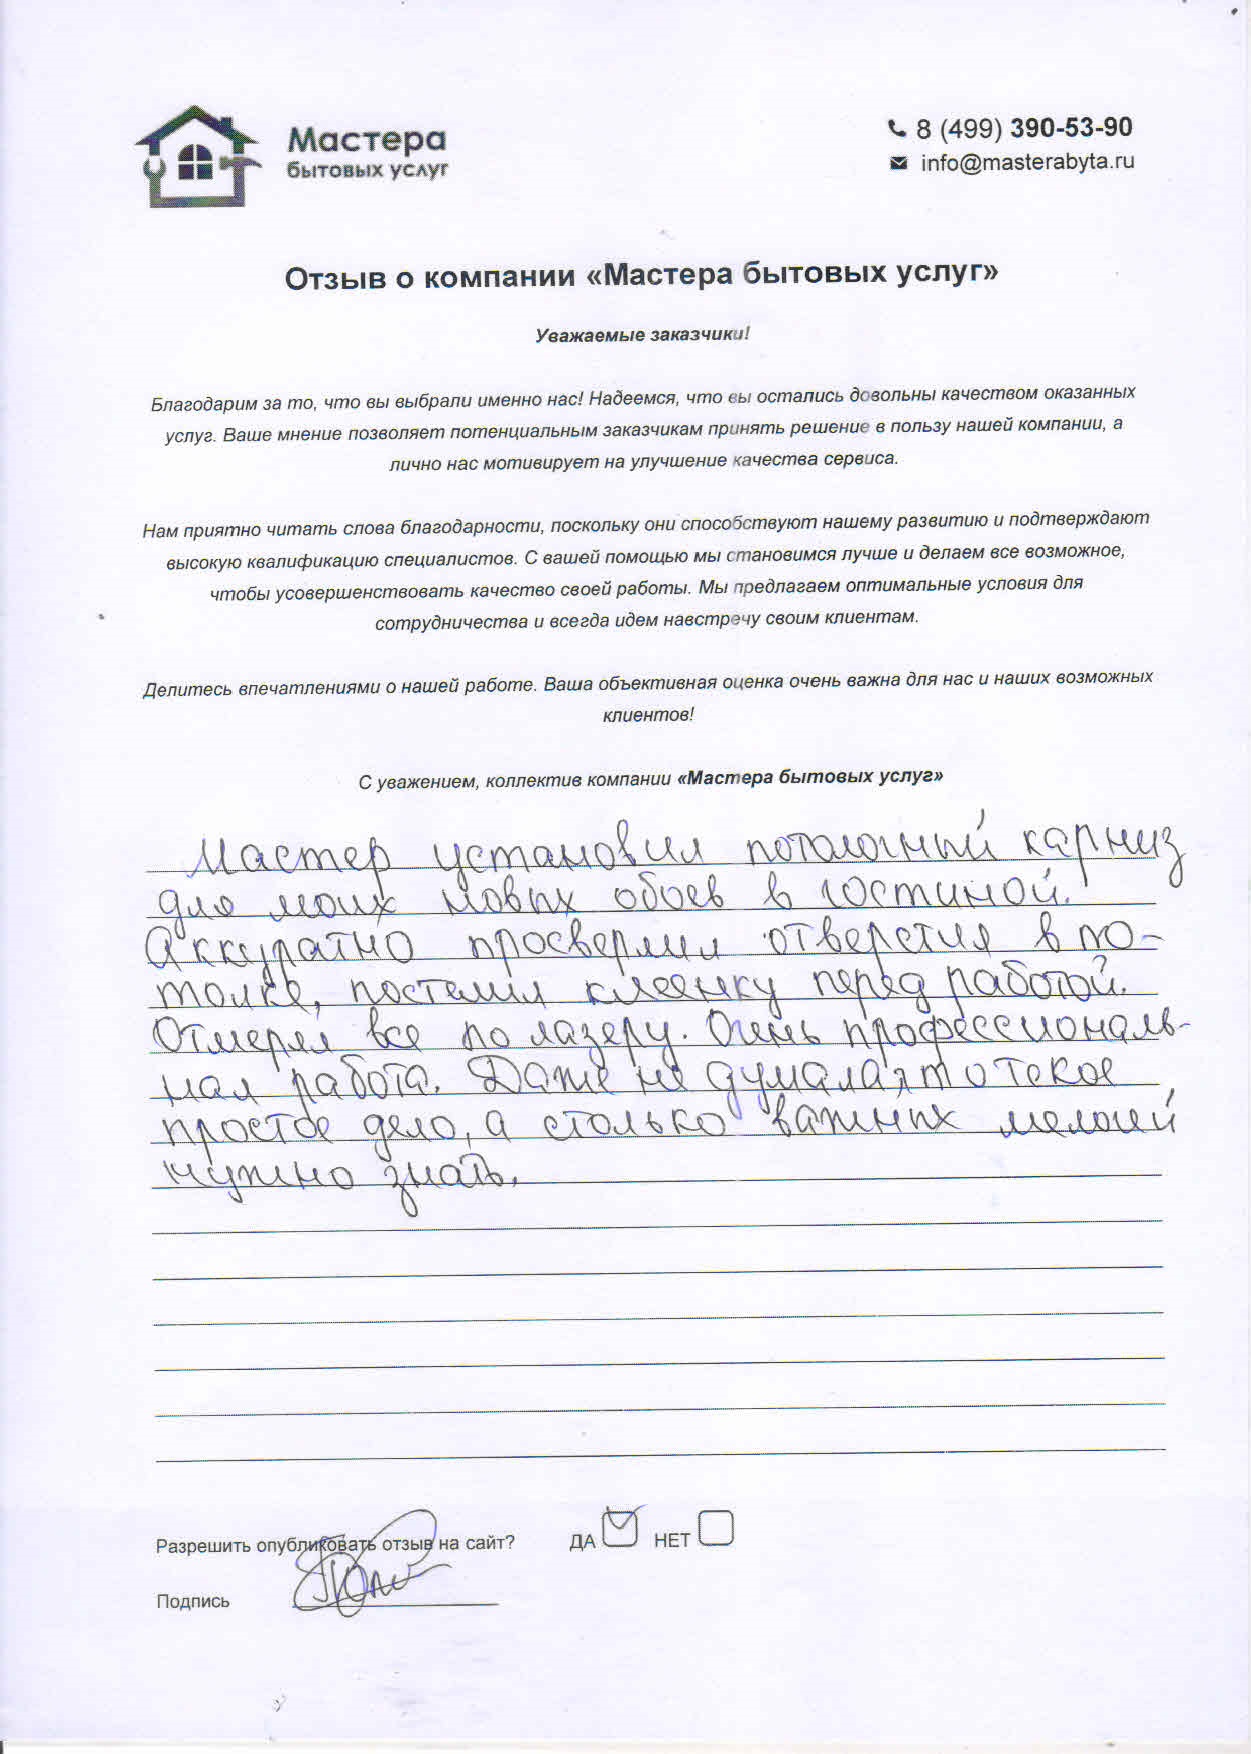 Мастера
бытовых услуг
8 (499) 390-53-90
info@masterabyta.ru
Отзыв о компании «Мастера бытовых услуг»
Уважаемые заказчики!
Благодарим за то, что вы выбрали именно нас! Надеемся, что вы остались довольны качеством оказанных
услуг. Ваше мнение позволяет потенциальным заказчикам принять решение в пользу нашей компании, а
лично нас мотивирует на улучшение качества сервиса.
Нам приятно читать слова благодарности, поскольку они способствуют нашему развитию и подтверждают
высокую квалификацию специалистов. С вашей помощью мы становимся лучше и делаем все возможное,
чтобы усовершенствовать качество своей работы. Мы предлагаем оптимальные условия для
сотрудничества и всегда идем навстречу своим клиентам.
Делитесь впечатлениями о нашей работе. Ваша объективная оценка очень важна для нас и наших возможных
клиентов!
С уважением, коллектив компании «Мастера бытовых услуг»
Мастер установил потолочный карниз
для моих новых обоев в гостиной.
Аккуратно просверлил отверстия в по-
толке, постелил клеенку перед работой.
Отмерял все по лазеру. Очень профессиональ-
ная работа. Даже не думала это такое
простое дело, а столько важных мелочей
нужно знать.
Разрешить опубликовать отзыв на сайт? ДА НЕТ
Подпись